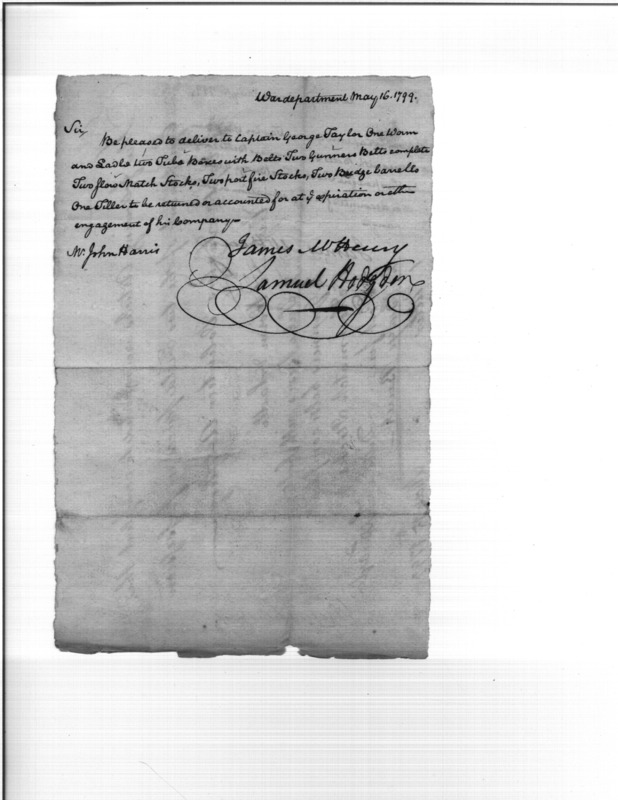 War department May 16. 1799.
Sir,
Be pleased to deliver to Captain George Taylor One Worm
and Ladle two Tube Boxes with Belts Two Gunners Belts complete
Two slow Match Stocks, Two port fire Stocks, Two Budge barrells
One Tiller to be returned or accounted for at ye expiration or
engagement of his Company.
Mr. John Harris
James McHenry
Samuel Hodgdon